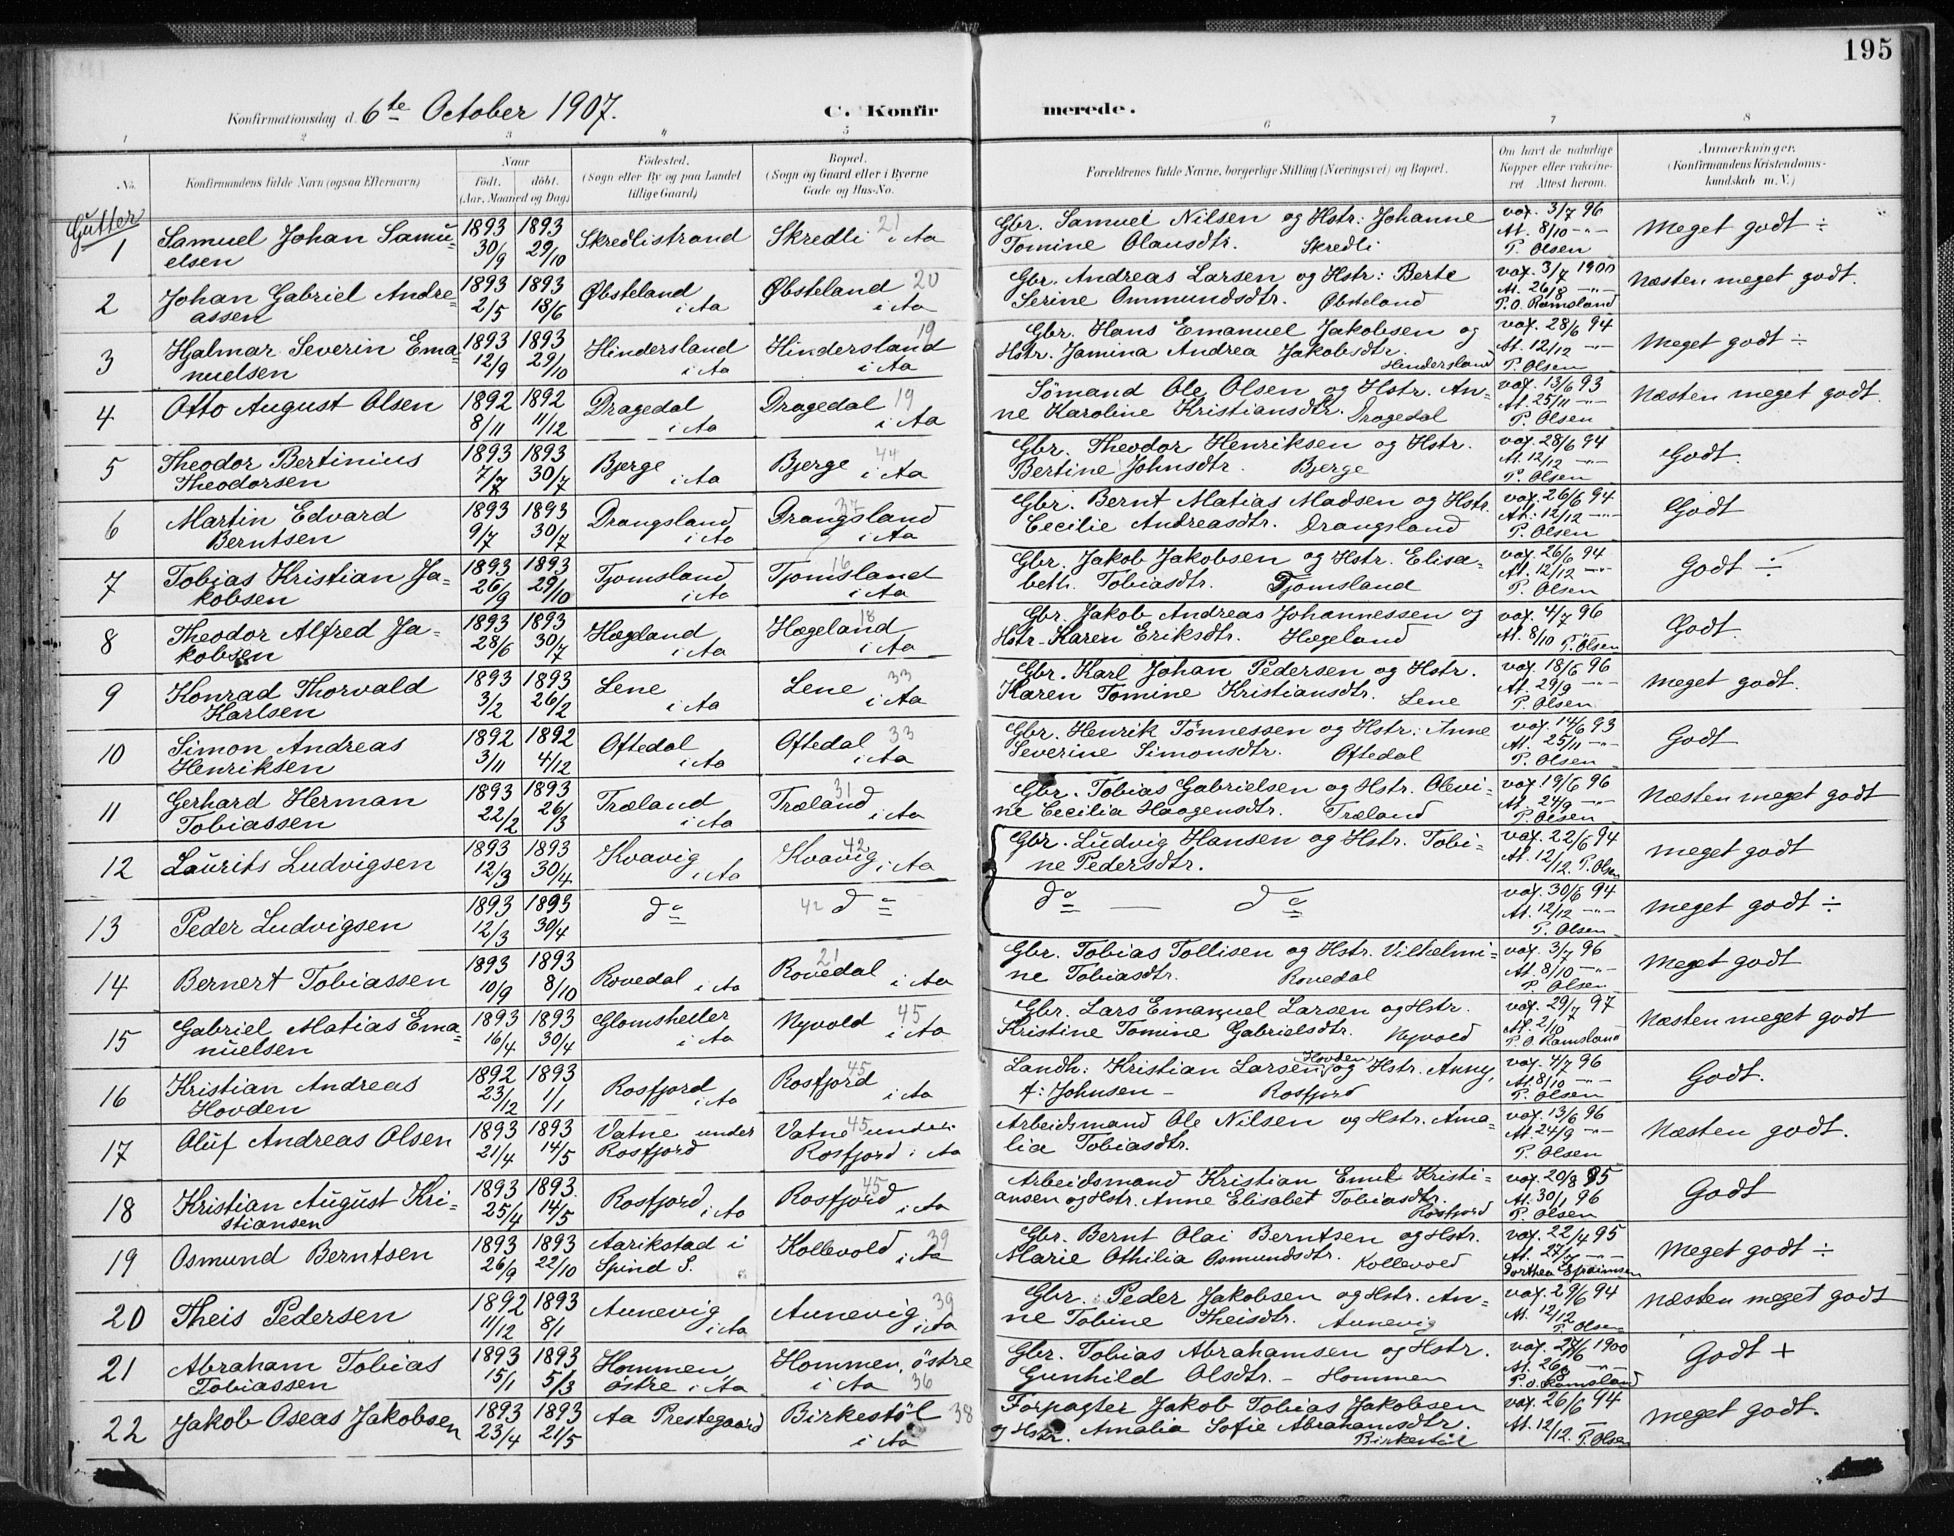 195
Konfirmationsdag d. 6te October 1907.
C. Konfirmerede.
1 2 3 4 5 6 7 8
No.
Konfirmandens fulde Navn (ogsaa Efternavn)
Naar
født. døbt.
(Aar, Maaned og Dag)
Fødested.
(Sogn eller By og paa Landet
tillige Gaard)
Bopæl.
(Sogn og Gaard eller i Byerne
Gade og Hus-No.
Forældrenes fulde Navne, borgerlige Stilling (Næringsvei) og Bopæl.
Om havt de naturlige
Kopper eller vakcine-
ret. Attest herom.
Anmerkninger.
(Konfirmandens Kristendoms-
kundskab m. V.)
Gutter
1 Samuel Johan Samu- 1893 1893 Skredlistrand Skredli 21 i Aa Gbr. Samuel Nilsen og Hstr: Johanne vax. 3/7 96 Meget godt ÷
elsen 30/9 29/10 Tomine Olausdtr. Skredli At. 8/10 -"-
P. Olsen
2 Johan Gabriel Andre- 1893 1893 Øbsteland Øbsteland 20 Gbr. Andreas Larsen og Hstr: Berte vax. 3/7 1900 Næsten meget godt.
assen 2/5 18/6 i Aa i Aa Serine Ommundsdtr. Øbsteland At. 26/8 -"-
P. O. Ramsland
3 Hjalmar Severin Ema- 1893 1893 Hindersland Hindersland 19 Gbr. Hans Emanuel Jakobsen og vax. 28/6 94 Meget godt ÷
nuelsen 12/9 29/10 i Aa i Aa Hstr. Jamina Andrea Jakobsdtr. Hindersland At. 12/12 -"-
P. Olsen
4 Otto August Olsen 1892 1892 Dragedal Dragedal 19 Sømand Ole Olsen og Hstr. An- vax. 13/6 93 Næsten meget godt.
8/11 11/12 i Aa i Aa ne Karoline Kristiansdtr. Dragedal At. 25/11 -"-
P. Olsen
5 Theodor Bertinius 1893 1893 Bjerge Bjerge 44 Gbr. Theodor Henriksen og Hstr. vax. 28/6 94 Godt.
Theodorsen 7/7 30/7 i Aa i Aa Bertine Johnsdtr. Bjerge At. 12/12 -"-
P. Olsen
6 Martin Edvard 1893 1893 Drangsland Drangsland 37 Gbr. Bernt Matias Madsen og Hstr. vax. 26/6 94 Godt
Berntsen 9/7 30/7 i Aa i Aa Cecilie Andreasdtr. Drangsland At. 12/12 -"-
P. Olsen
7 Tobias Kristian Ja- 1893 1893 Tjomsland Tjomsland 16 Gbr. Jakob Jakobsen og Hstr. Elisa- vax. 26/6 94 Godt ÷
kobsen 26/9 29/10 i Aa i Aa beth Tobiasdtr. Tjomsland At. 12/12 -"-
P. Olsen
8 Theodor Alfred Ja- 1893 1893 Hægland Hægeland 18 Gbr. Jakob Andreas Johannessen og vax. 4/7 96 Godt.
kobsen 28/6 30/7 i Aa i Aa Hstr. Karen Eriksdtr. Hægeland At. 8/10 P. Olsen
9 Konrad Thorvald 1893 1893 Lene Lene 33 Gbr. Karl Johan Pedersen og Hstr. vax. 18/6 96 Meget godt.
Karlsen 3/2 26/2 i Aa i Aa Karen Tomine Kristiansdtr. Lene At. 29/9 -"-
P. Olsen
10 Simon Andreas 1892 1892 Oftedal Oftedal 33 Gbr. Henrik Tønnessen og Hstr: Anne vax. 14/6 93 Godt
Henriksen 3/11 4/12 i Aa i Aa Severine Simonsdtr. Oftedal At. 25/11 -"-
P. Olsen
11 Gerhard Herman 1893 1893 Træland Træland 31 Gbr. Tobias Gabrielsen og Hstr. Olevi- vax. 19/6 96 Næsten meget godt
Tobiassen 22/2 26/3 i Aa i Aa ne Cecilia Haagensdtr. Træland At. 24/9 -"-
P. Olsen
12 Laurits Ludvigsen 1893 1893 Kvavig Kvavig 42 Gbr. Ludvig Hansen og Hstr. Tobi- vax. 22/6 94 meget godt
12/3 30/4 i Aa i Aa ne Pedersdtr. At. 12/12. P. Olsen
13 Peder Ludvigsen 1893 1893 do 42 do do — do vax. 30/6 94 meget godt ÷
12/3 30/4 At. 12/12 -"-
P. Olsen
14 Bernert Tobiassen 1893 1893 Rovedal Rovedal 21 Gbr. Tobias Tollisen og Hstr. Vilhelmi- vax. 3/7 96 Meget godt
10/9 8/10 i Aa i Aa ne Tobiasdtr. Rovedal At. 8/10 -"-
P. Olsen
15 Gabriel Matias Ema- 1893 1893 Glomsheller Nyvold 45 Gbr. Lars Emanuel Larsen og Hstr. vax. 29/7 97 Næsten meget godt
nuelsen 16/4 30/4 i Aa i Aa Kristine Tomine Gabrielsdtr. Nyvold At. 2/10
P. O. Ramsland
16 Kristian Andreas 1892 1893 Rosfjord Rosfjord 45 Landh: Kristian Larsen Hovden og Hstr. Anny, vax. 4/7 96 Godt.
Hovden 23/12 1/1 i Aa i Aa f: Johnsen – Rosfjord At. 8/10 -"-
P. Olsen
17 Oluf Andreas Olsen 1893 1893 Vatne under Vatne 45 under Arbeidsmand Ole Nilsen og Hstr. Ama- vax. 13/6 96 Næsten godt.
21/4 14/5 Rosfjord Rosfjord i Aa lia Tobiasdtr. At. 24/9 -"-
P. Olsen
18 Kristian August Kri- 1893 1893. Rosfjord Rosfjord 45 Arbeidsmand Kristian Emil Kristi- vax. 20/8 95 Godt
stiansen 25/4 14/5 i Aa i Aa ansen og Hstr. Anne Elisabet Tobiasdtr. Rosfjord At. 30/1 96
P. Olsen
19 Osmund Berntsen 1893 1893 Aarikstad i Kollevold 39 Gbr. Bernt Olai Berntsen og Hstr. vax. 22/4 95 Meget godt ÷
26/9 22/10 Spind S. i Aa Marie Othilia Osmundsdtr. Kollevold At. 27/7 -"-
Dorthea Efraimsen
20 Theis Pedersen 1892 1893 Aunevig Aunevig 39 Gbr. Peder Jakobsen og Hstr. An- vax. 29/6 94 Næsten meget godt
11/12 8/1 i Aa i Aa ne Tobine Theisdtr. Aunevig At. 12/12
P. Olsen
21 Abraham Tobias 1893 1893 Hommen, Hommen, østre Gbr. Tobias Abrahamsen og Hstr. vax. 27/6 1900 Godt +
Tobiassen 15/1 5/3 østre i Aa i Aa 36 Gunhild Olsdtr. – Hommen At. 26/8 -"-
P. O. Ramsland
22 Jakob Oseas Jakobsen 1893 1893 Aa Prestegaard Birkestøl 38 Forpagter Jakob Tobias Jakobsen vax. 26/6 94 meget godt.
23/4 21/5 i Aa og Hstr. Amalia Sofie Abrahamsdtr. Birkestøl At. 12/12. P. Olsen